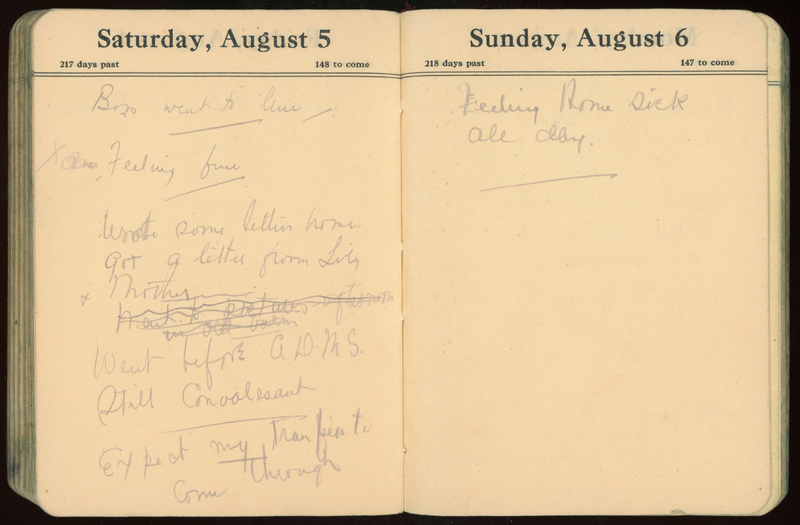 Saturday, August 5
217 days past 148 to come
Boys went to line
am Feeling fine
Wrote some letters home.
Got a letter from Lily
& Mother
Went to pictures afternoon
in old barn
Went before A.D.M.S.
Still Convalesant
Expect my transfer to
Come through
Sunday, August 6
218 days past 147 to come
Feeling Home Sick
all day.